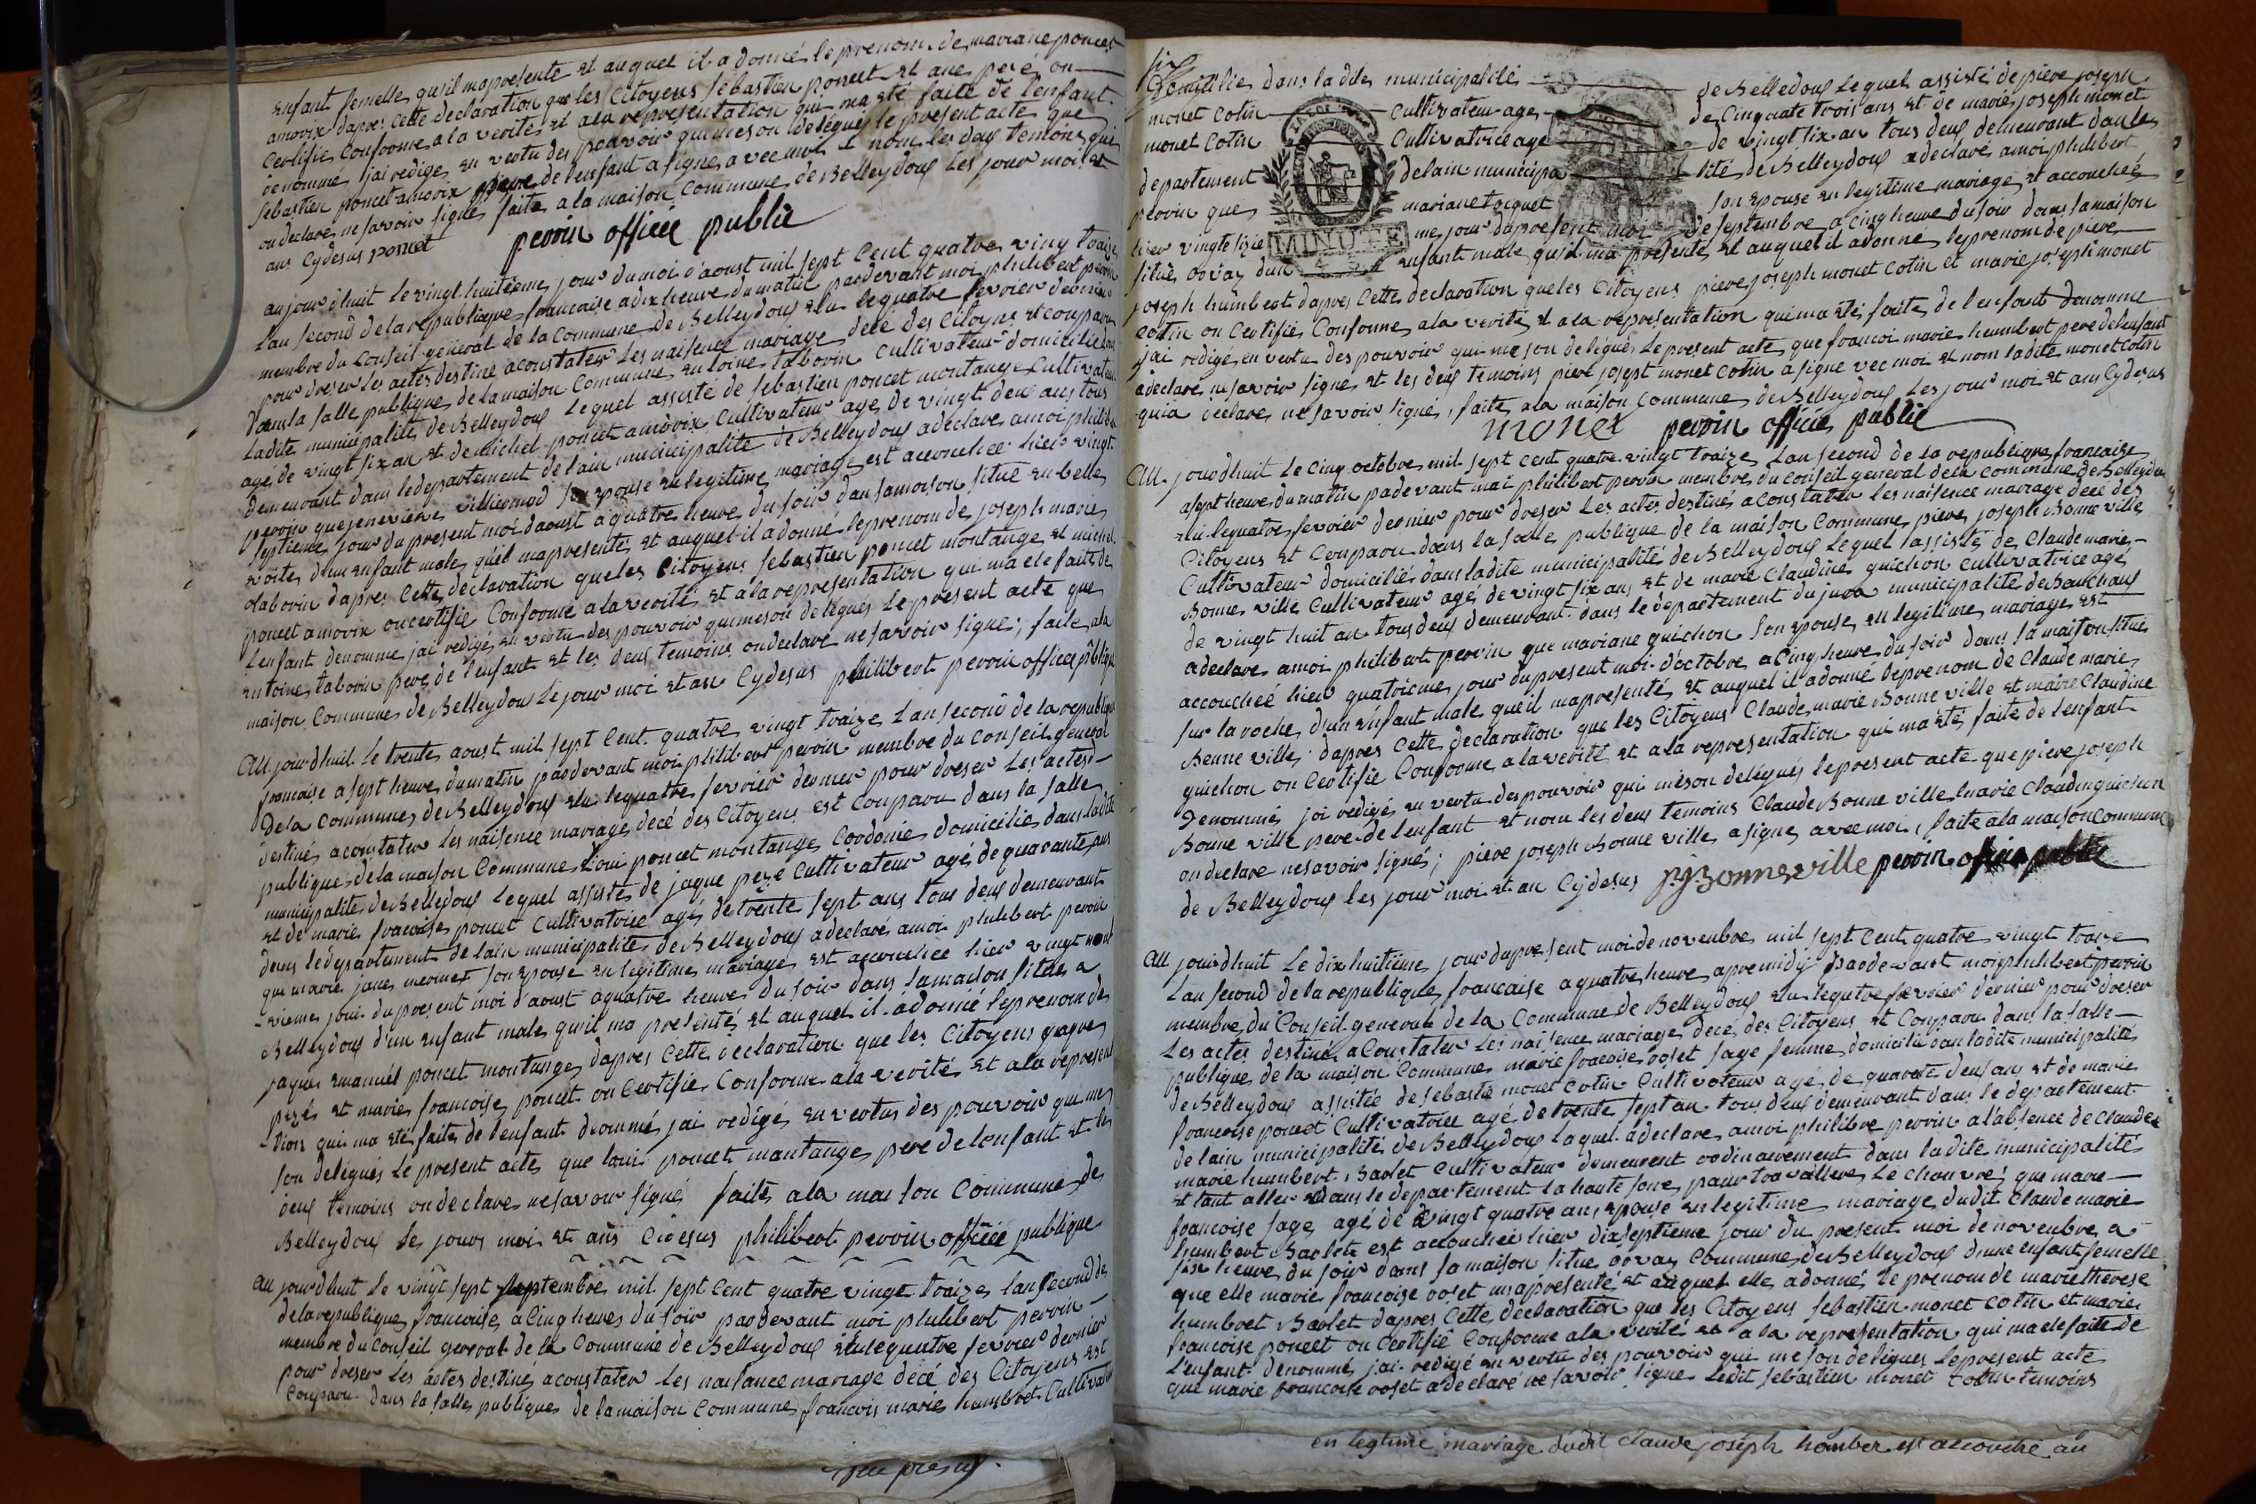 enfant femelle qu'il ma presente et auquel il a donné le prenom de mariane poncet
amorix dapres cette declaration que les Citoyens sebastien poncet et ane peré on
Certifie Conforme a la verité et a la representation qui ma eté faite de l'enfant
denomme jai redige en vertu des pouvoir qui me son delegué le present acte que
sebastien poncet amorix pere de l'enfant a signe avec moi et nom les deus temoins qui
on declare ne savoir signé faite a la maison Commune de Belleydoux les jour moi et
ans Cy desus poncet
perrin officié public
aujourdhuit le vingt huitieme jour du moi d'aoust mil sept Cent quatre vingt traize
Lan second de la republique francaise a dix heure du matin pardevant moi philibert perrin
membre du Conseil general de la Commune de Belleydoux elu le quatre fevrier dernier
pour dreser les actes destiné a constater les naisence mariage decé des Citoyens et comparu
dans la salle publique de la maison Commune antoine taborin cultivateur domicilié dans
Ladite municipalité de Belleydoux Lequel assisté de sebastien poncet montange Cultivateur
agé de vingt six an et de michel poncet amorix Cultivateur age de vingt deux ans tous
demeurant dans le departement de lain municipalite de Belleydoux a declare a moi philibert
perrin que genevieve villiermod son epouse en legitime mariage est accouchee hier vingt
septieme jour du present moi daoust a quatre heure du soir dan sa maison situé en belle
voite d'un enfant male qu'il ma presente et auquel il a donné le prenom de joseph marie
taborin dapres Cette declaration que les Citoyens sebastien poncet montange et michel
poncet amorix on certifie Conforme a la verité et a la representation qui ma ete faite de
L'enfant denomme jai redigé en vertu des pouvoir qui me son delegués Le present acte que
antoine taborin pere de l'enfant et les deus temoins on declaré ne savoir signe; faite a la
maison Commune de Belleydoux Le jour moi et an Cy desus philibert perrin officié publique
Aujourdhuit le trente aoust mil sept Cent quatre vingt traize Lan second de la republique
francaise a sept heure du matin pardevant moi philibert perrin membre du Conseil general
de la Commune de Belleydoux elu le quatre fevrier dernier pour dreser Les actes
destiné a constater Les naisence mariage decé des Citoyens est Comparu dans la salle
publique de la maison Commune Loui poncet montange Cordonie domicilié dans ladite
municipalité de Belleydoux Lequel assisté de jaque pezé Cultivateur agé de quarante ans
et de marie francoise poncet Cultivatrice agé de trente sept ans tous deus demeurant
dans le departement de lain municipalite de Belleydoux a declaré a moi philibert perrin
que marie jane mermet son epouse en legitime mariage est accouchee hier vingt neuf
vieme jour du present moi d'aoust a quatre heure du soir dans sa maison située a
Belleydoux d'un enfant male qu'il ma presenté et auquel il a donné le prenom de
jaques emanuel poncet montange dapres Cette declaration que les Citoyens jaque
pezé et marie francoise poncet on Certifie Conforme a la verité et a la represent
tion qui ma eté faite de l'enfant denommé jai redigé en vertus des pouvoir qui me
son delegués Le present acte que loui poncet montange pere de l'enfant et les
deus temoins on declare ne savoir signé faite a la maison Commune de
Belleydoux Les jours moi et ans Cidesus philibert perrin officié publique
Aujourdhuit Le vingt sept septembre mil sept Cent quatre vingt traize Lan second de
de la republique francoise a Cinq heure du soir pardevant moi philibert perrin
membre du Conseil general de la Commune de Belleydoux elu le quatre fevrier dernier
pour dreser Les actes destiné a constater Les naisance mariage decé des Citoyens est
Comparu dans la salle publique de la maison Commune francois marie humbert Cultivateur
six
Domicilie dans la dite municipalité de Belledoux Lequel assisté de piere joseph
monet Cotin Cultivateur age de Cinquate trois ans et de marie joseph monet
monet Cotin Cultivatrice age de vingt six an tous deus demeurant dan le
departement delain municipa lité de Belleydoux a declaré a moi philibert
perrin que mariane tocquet son epouse en legitime mariage et accouchee
hier vingte sizie me jour dapresent moi de septembre a Cinq heure du soir dans sa maison
situé orvaz dun enfant male qu'il ma presenté et auquel il a donné le prenom de piere
MINUTE
joseph humbert dapres Cette declaration que les Citoyens piere joseph monet Cotin et marie joseph monet
cotin on Certifié Conforme a la verité et a la representation qui ma eté faite de l'enfant denommé
jai redigé en vertu des pouvoir qui me son delegués Le present acte que francoi marie humbert pere de l'enfant
a declaré ne savoir signe et les deus temoins piere josept monet Cotin a signe vec moi et nom ladite monet Cotin
qui a declare ne savoir signé, faite a la maison Commune de Belleydoux Les jour moi et ans Cy desus
monet perrin officié public
Au jourdhuit Le Cinq octobre mil sept Cent quatre vingt traize Lan second de la republique francaise
a sept heure du matin pardevant moi philibert perrin membre du Conseil general de la Commune de Belleydoux
elu le quatre fevrier dernier pour dreser Les actes destiné a Constater Les naisence mariage decé des
Citoyens et Comparu dans la salle publique de la maison Commune piere joseph Bonne ville
Cultivateur domicilié dans ladite municipalité de Belleydoux Lequel assisté de Claude marie
Bonne ville Cultivateur agé de vingt six ans et de marie Claudine guichon cultivatrice agé
de vingt huit an tous deus demeurant dans le departement du jura municipalité de Bouchoux
a declare a moi philibert perrin que mariane guichon son epouse en legitime mariage est
accoucheé hier quatrieme jour du present moi d'octobre a Cinq heure du soir dans sa maison situé
sur la roche dun enfant male qu'il ma presenté et auquel il a donné le prenom de Claude marie
Bonne ville; dapres Cette declaration que les Citoyens Claude marie Bonne ville et marie Claudine
guichon on Certifie Conforme a la verité et a la representation qui ma eté faite de l'enfant
denommé jai redigé en vertu des pouvoir qui me son delegués le present acte que piere joseph
Bonne ville pere de l'enfant et nom les deus temoins Claude Bonne ville marie Claudine guichon
on declare ne savoir signés; piere joseph Bonne ville a signe avec moi, faite a la maison Commune
de Belleydoux les jour moi et an Cydesus pj Bonneville perrin officié public
Au jourdhuit Le dix huitième jour du present moi de novenbre mil sept Cent quatre vingt traize
Lan second de la republique francaise a quatre heure apremidy pardevant moi philibert perrin
membre du Conseil general de la Commune de Belleydoux elu le quatre fevrier dernier pour dreser
Les actes destiné a Constater Les naisence mariage decé des Citoyens et Comparu dans la salle
publique de la maison Commune marie francoise roset sage femme domicilié dan ladite municipalité
de Belleydoux assistée de sebastie monet Cotin Cultivateur agé de quarate deus ans et de marie
francoise poncet Cultivatrice agé de trente sept an tous deus demeurant dans le departement
de lain municipalité de Belleydoux Laquel a declare a moi philibert perrin a l'absence de Claude
marie humbert Barlet Cultivateur demeurent ordinairement dans ladite municipalité
et tant aller dans le departement la haute sone pour travallier Le chanvre; que marie
francoise sage agé de vingt quatre ans epouse en legitime mariage dudit Claude marie
humbert Barlet est accouchée hier dixseptieme jour du present moi de novenbre a
six heure du soir dans sa maison situe orvaz Commune de Belleydoux d'une enfant femelle
que elle marie francoise roset ma presenté et auquel elle a donné le prenom de marie therese
humbert Barlet dapres Cette declaration que les Citoyens sebastien monet Cotin et marie
francoise poncet on Certifié Conforme a la verité et a la representation qui ma ete faite de
L'enfant denommé jai redigé en vertu des pouvoir qui me son delegues Le present acte
que marie francoise roset a declaré ne savoir signe Ledit sebastien monet Cotin temoins
en legtime mariage dudit claude joseph homber est acouche au